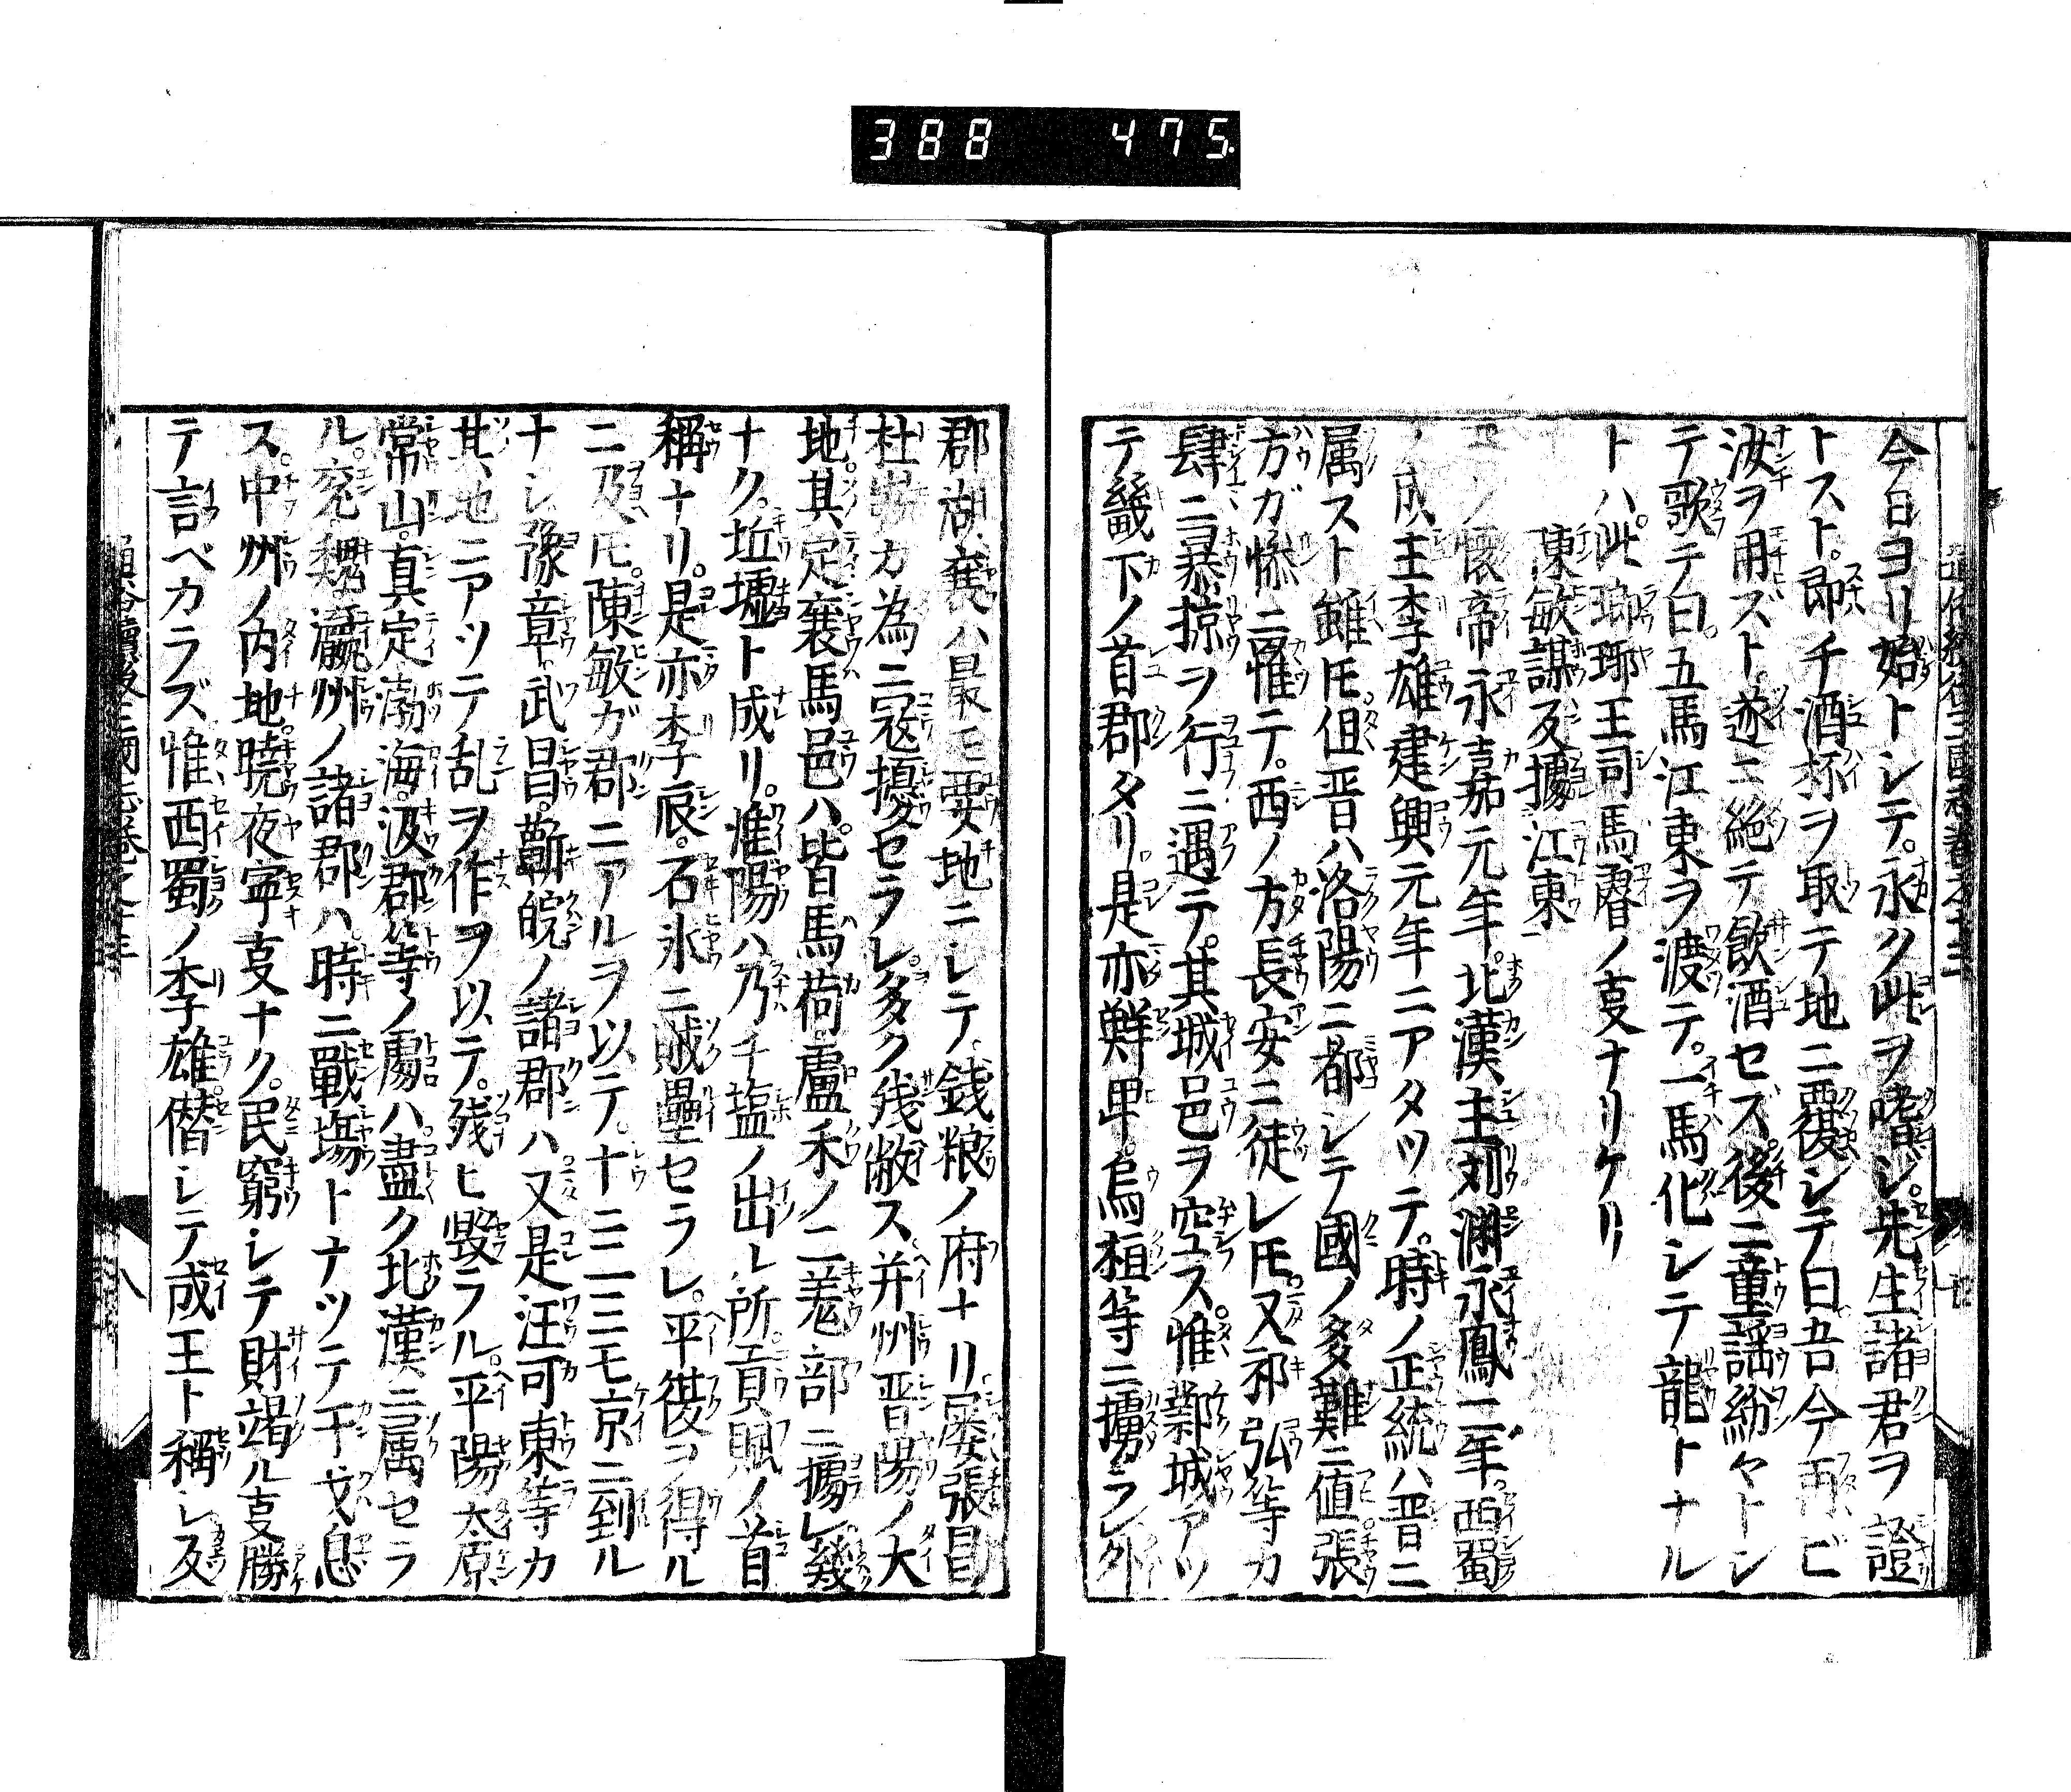 388 475
今日ヨリ始トシテ。永ク此ヲ嗜シ。先生諸君ヲ證
トスト。即チ酒杯ヲ取テ地ニ覆シテ曰吾今再ビ
汝ヲ用ズト。遂ニ絶テ飲酒セズ。後ニ童謡紛々トシ
テ歌テ曰。五馬江東ヲ渡テ。一馬化シテ龍トナル
トハ。此瑯琊王司馬睿ノ叓ナリケリ
陳敏謀反據江東
ノ懷帝永嘉元年。北漢主刘渊永鳳二年。西蜀
ノ成主李雄建興元年ニアタツテ。時ノ正統ハ晋ニ
属スト雖𪜈。但晋ハ洛陽ニ都シテ國ノ多難ニ値張
方ガ惨ニ罹テ。西ノ方長安ニ徒レ𪜈。又祁弘等カ
肆ニ暴掠ヲ行ニ遇テ。其城邑ヲ空ス。惟鄴城アツ
テ畿下ノ首郡タリ。是亦鮮卑。烏桓等ニ擄ラレ外
郡湖襄ハ最モ要地ニシテ。銭粮ノ府ナリ。屡張昌
杜弢カ為ニ冦擾セラレ。多ク残敝ス并州晋陽ノ大
地其定襄馬邑ハ。皆馬荷盧禾ノ二羌部ニ據レ。幾
ナク。坵墟ト成リ。淮陽ハ乃チ塩ノ出ル所貢賦ノ首
稱ナリ。是亦李辰。石氷ニ賊壘セラレ。平復ヲ得ル
ニ及𪜈。陳敏ガ郡ニアルヲ以テ。十ニ一二三モ京ニ到ル
ナシ豫章武昌。蘄皖ノ諸郡ハ又是汪可東等カ
其地ニアツテ乱ヲ作ヲ以テ。残ヒ毀ラル。平陽太原
常山。真定渤海。汲郡等ノ處ハ盡ク北漢ニ属セラ
ル。兖魏瀛州ノ諸郡ハ。時ニ戰塲トナツテ干戈息
ス。中州ノ内地。曉夜寧叓ナク。民窮シテ財竭ル叓勝
テ言ベカラズ惟西蜀ノ李雄僣シテ成王ト稱シ反